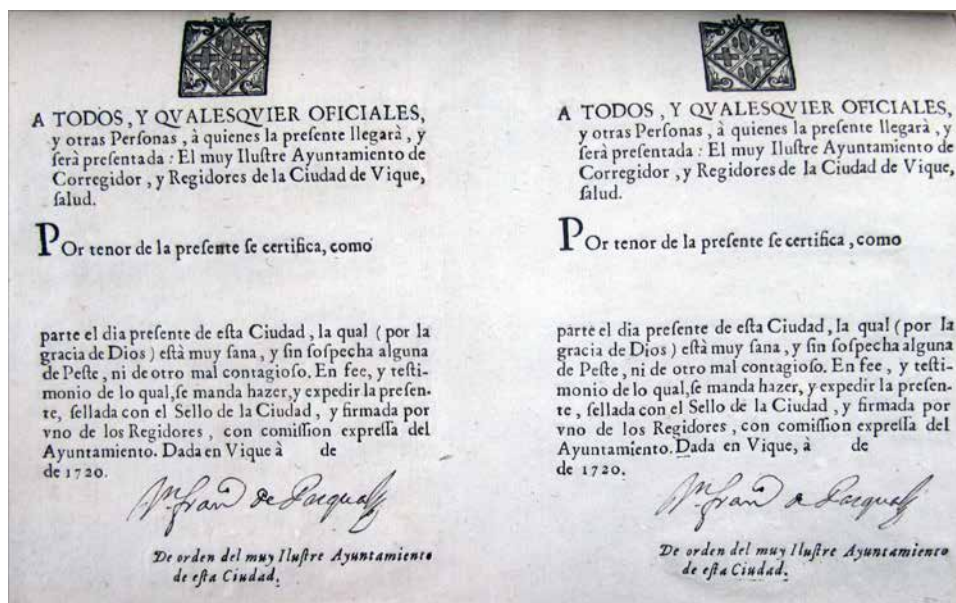 A TODOS, Y QVALESQVIER OFICIALES,
y otras Perſonas, à quienes la preſente llegarà, y
ſerà preſentada: El muy Iluſtre Ayuntamiento de
Corregidor, y Regidores de la Ciudad de Vique,
ſalud.
POr tenor de la preſente ſe certifica, como
parte el dia preſente de eſta Ciudad, la qual (por la
gracia de Dios) eſtà muy ſana, y ſin ſoſpecha alguna
de Peſte, ni de otro mal contagioſo. En fee, y teſti-
monio de lo qual, ſe manda hazer, y expedir la preſen-
te, ſellada con el Sello de la Ciudad, y firmada por
vno de los Regidores, con comiſſion expreſſa del
Ayuntamiento. Dada en Vique à de
de 1720.
de Pasqual
De orden del muy Iluſtre Ayuntamiento
de eſta Ciudad.
A TODOS, Y QVALESQVIER OFICIALES,
y otras Perſonas, à quienes la preſente llegarà, y
ſerà preſentada: El muy Iluſtre Ayuntamiento de
Corregidor, y Regidores de la Ciudad de Vique,
ſalud.
POr tenor de la preſente ſe certifica, como
parte el dia preſente de eſta Ciudad, la qual (por la
gracia de Dios) eſtà muy ſana, y ſin ſoſpecha alguna
de Peſte, ni de otro mal contagioſo. En fee, y teſti-
monio de lo qual, ſe manda hazer, y expedir la preſen-
te, ſellada con el Sello de la Ciudad, y firmada por
vno de los Regidores, con comiſſion expreſſa del
Ayuntamiento. Dada en Vique, à de
de 1720.
Pasqual
De orden del muy Iluſtre Ayuntamiento
de eſta Ciudad.